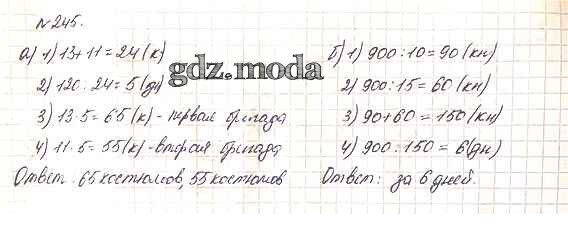 № 245.
а) 1) 13 + 11 = 24 (к)
2) 120 : 24 = 5 (дн)
3) 13·5 = 65 (к) - первая бригада
4) 11·5 = 55 (к) - вторая бригада
Ответ: 65 костюмов, 55 костюмов
б) 1) 900 : 10 = 90 (кн)
2) 900 : 15 = 60 (кн)
3) 90 + 60 = 150 (кн)
4) 900 : 150 = 6 (дн)
Ответ: за 6 дней.
gdz.moda